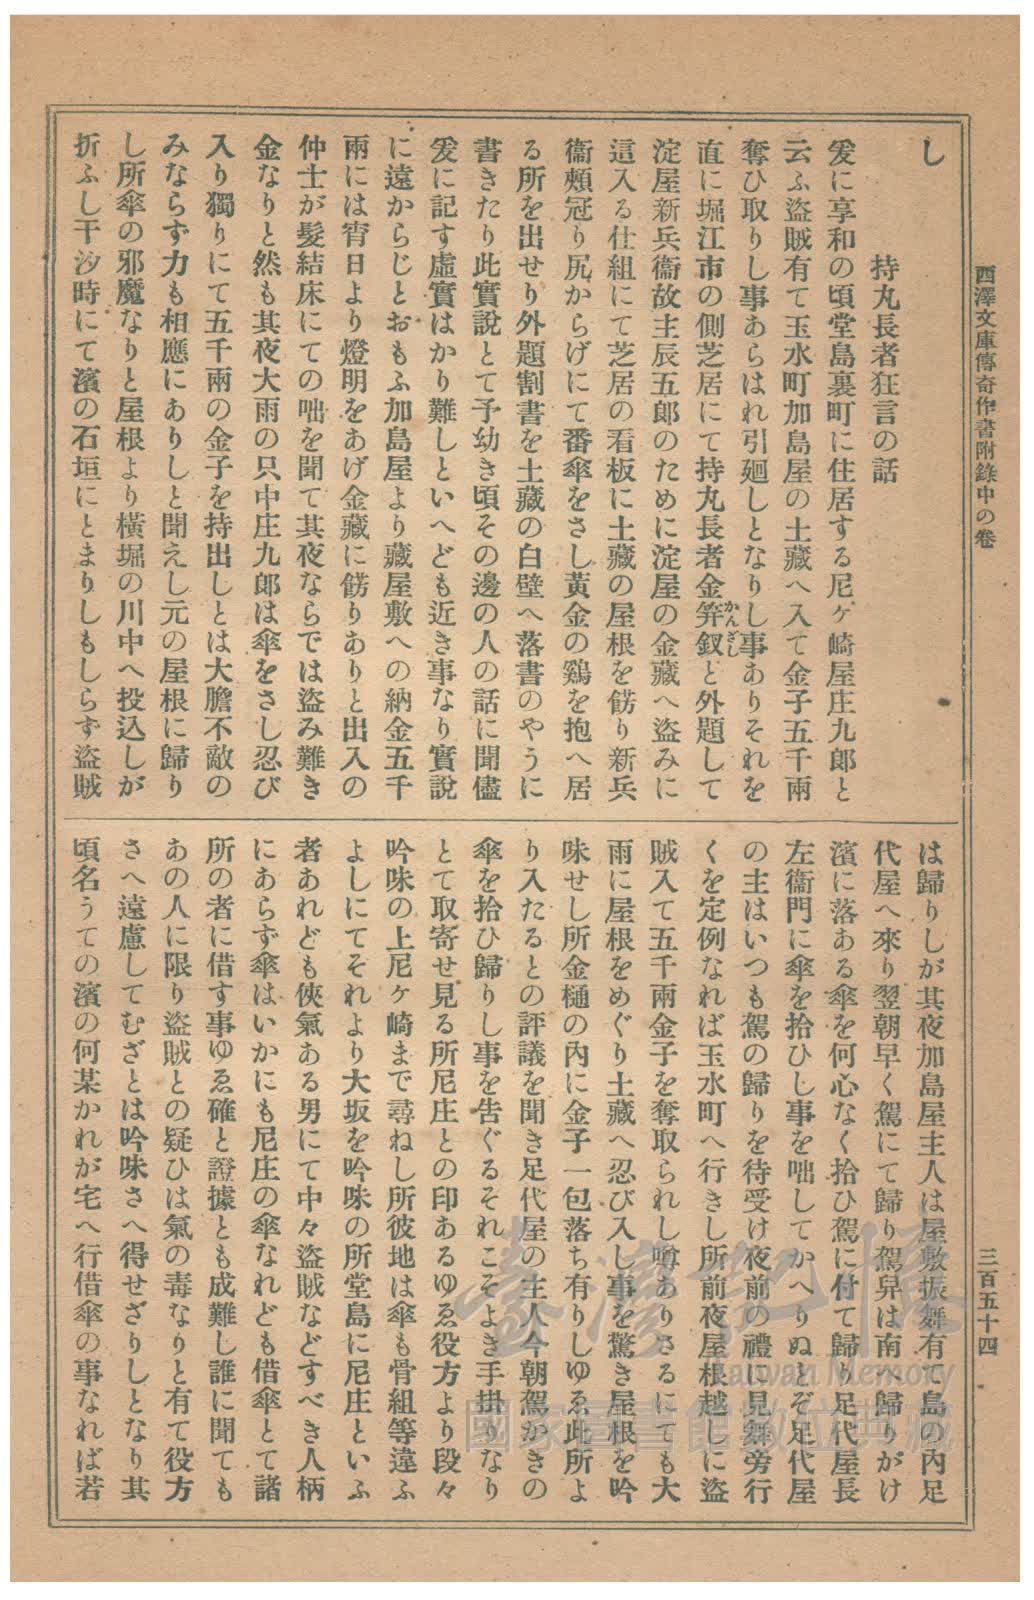 西澤文庫傳奇作書附錄中の卷
三百五十四
し
持丸長者狂言の話
爰に享和の頃堂島裏町に住居する尼ヶ崎屋庄九郎と
云ふ盜賊有て玉水町加島屋の土藏へ入て金子五千兩
奪ひ取りし事あらはれ引廻しとなりし事ありそれを
直に堀江市の側芝居にて持丸長者金笄釵と外題して
かんざし
淀屋新兵衞故主辰五郎のために淀屋の金藏へ盜みに
這入る仕組にて芝居の看板に土藏の屋根を餝り新兵
衞頰冠り尻からげにて番傘をさし黃金の鷄を抱へ居
る所を出せり外題割書を土藏の白壁へ落書のやうに
書きたり此實說とて予幼き頃その邊の人の話に聞儘
爰に記す虛實はかり難しといへども近き事なり實說
に遠からじとおもふ加島屋より藏屋敷への納金五千
兩には宵日より燈明をあげ金藏に餝りありと出入の
仲士が髮結床にての咄を聞て其夜ならでは盜み難き
金なりと然も其夜大雨の只中庄九郎は傘をさし忍び
入り獨りにて五千兩の金子を持出しとは大膽不敵の
みならず力も相應にありしと聞えし元の屋根に歸り
し所傘の邪魔なりと屋根より橫堀の川中へ投込しが
折ふし干汐時にて濱の石垣にとまりしもしらず盜賊
は歸りしが其夜加島屋主人は屋敷振舞有て島の內足
代屋へ來り翌朝早く駕にて歸り駕舁は南へ歸りがけ
濱に落ある傘を何心なく拾ひ駕に付て歸り足代屋長
左衞門に傘を拾ひし事を咄してかへりぬとぞ足代屋
の主はいつも駕の歸りを待受け夜前の禮に見舞旁行
くを定例なれば玉水町へ行きし所前夜屋根越しに盜
賊入て五千兩金子を奪取られし噂ありさるにても大
雨に屋根をめぐり土藏へ忍び入し事を驚き屋根を吟
味せし所金樋の內に金子一包落ち有りしゆゑ此所よ
り入たるとの評議を聞き足代屋の主人今朝駕かきの
傘を拾ひ歸りし事を告ぐるそれこそよき手掛りなり
とて取寄せ見る所尼庄との印あるゆゑ役方より段々
吟味の上尼ヶ崎まで尋ねし所彼地は傘も骨組等違ふ
よしにてそれより大坂を吟味の所堂島に尼庄といふ
者あれども俠氣ある男にて中々盜賊などすべき人柄
にあらず傘はいかにも尼庄の傘なれども借傘とて諸
所の者に借す事ゆゑ確と證據とも成難し誰に聞ても
あの人に限り盜賊との疑ひは氣の毒なりと有て役方
さへ遠慮してむざとは吟味さへ得せざりしとなり其
頃名うての濱の何某かれが宅へ行借傘の事なれば若
臺灣記憶
Taiwan Memory
國家圖書館數位典藏